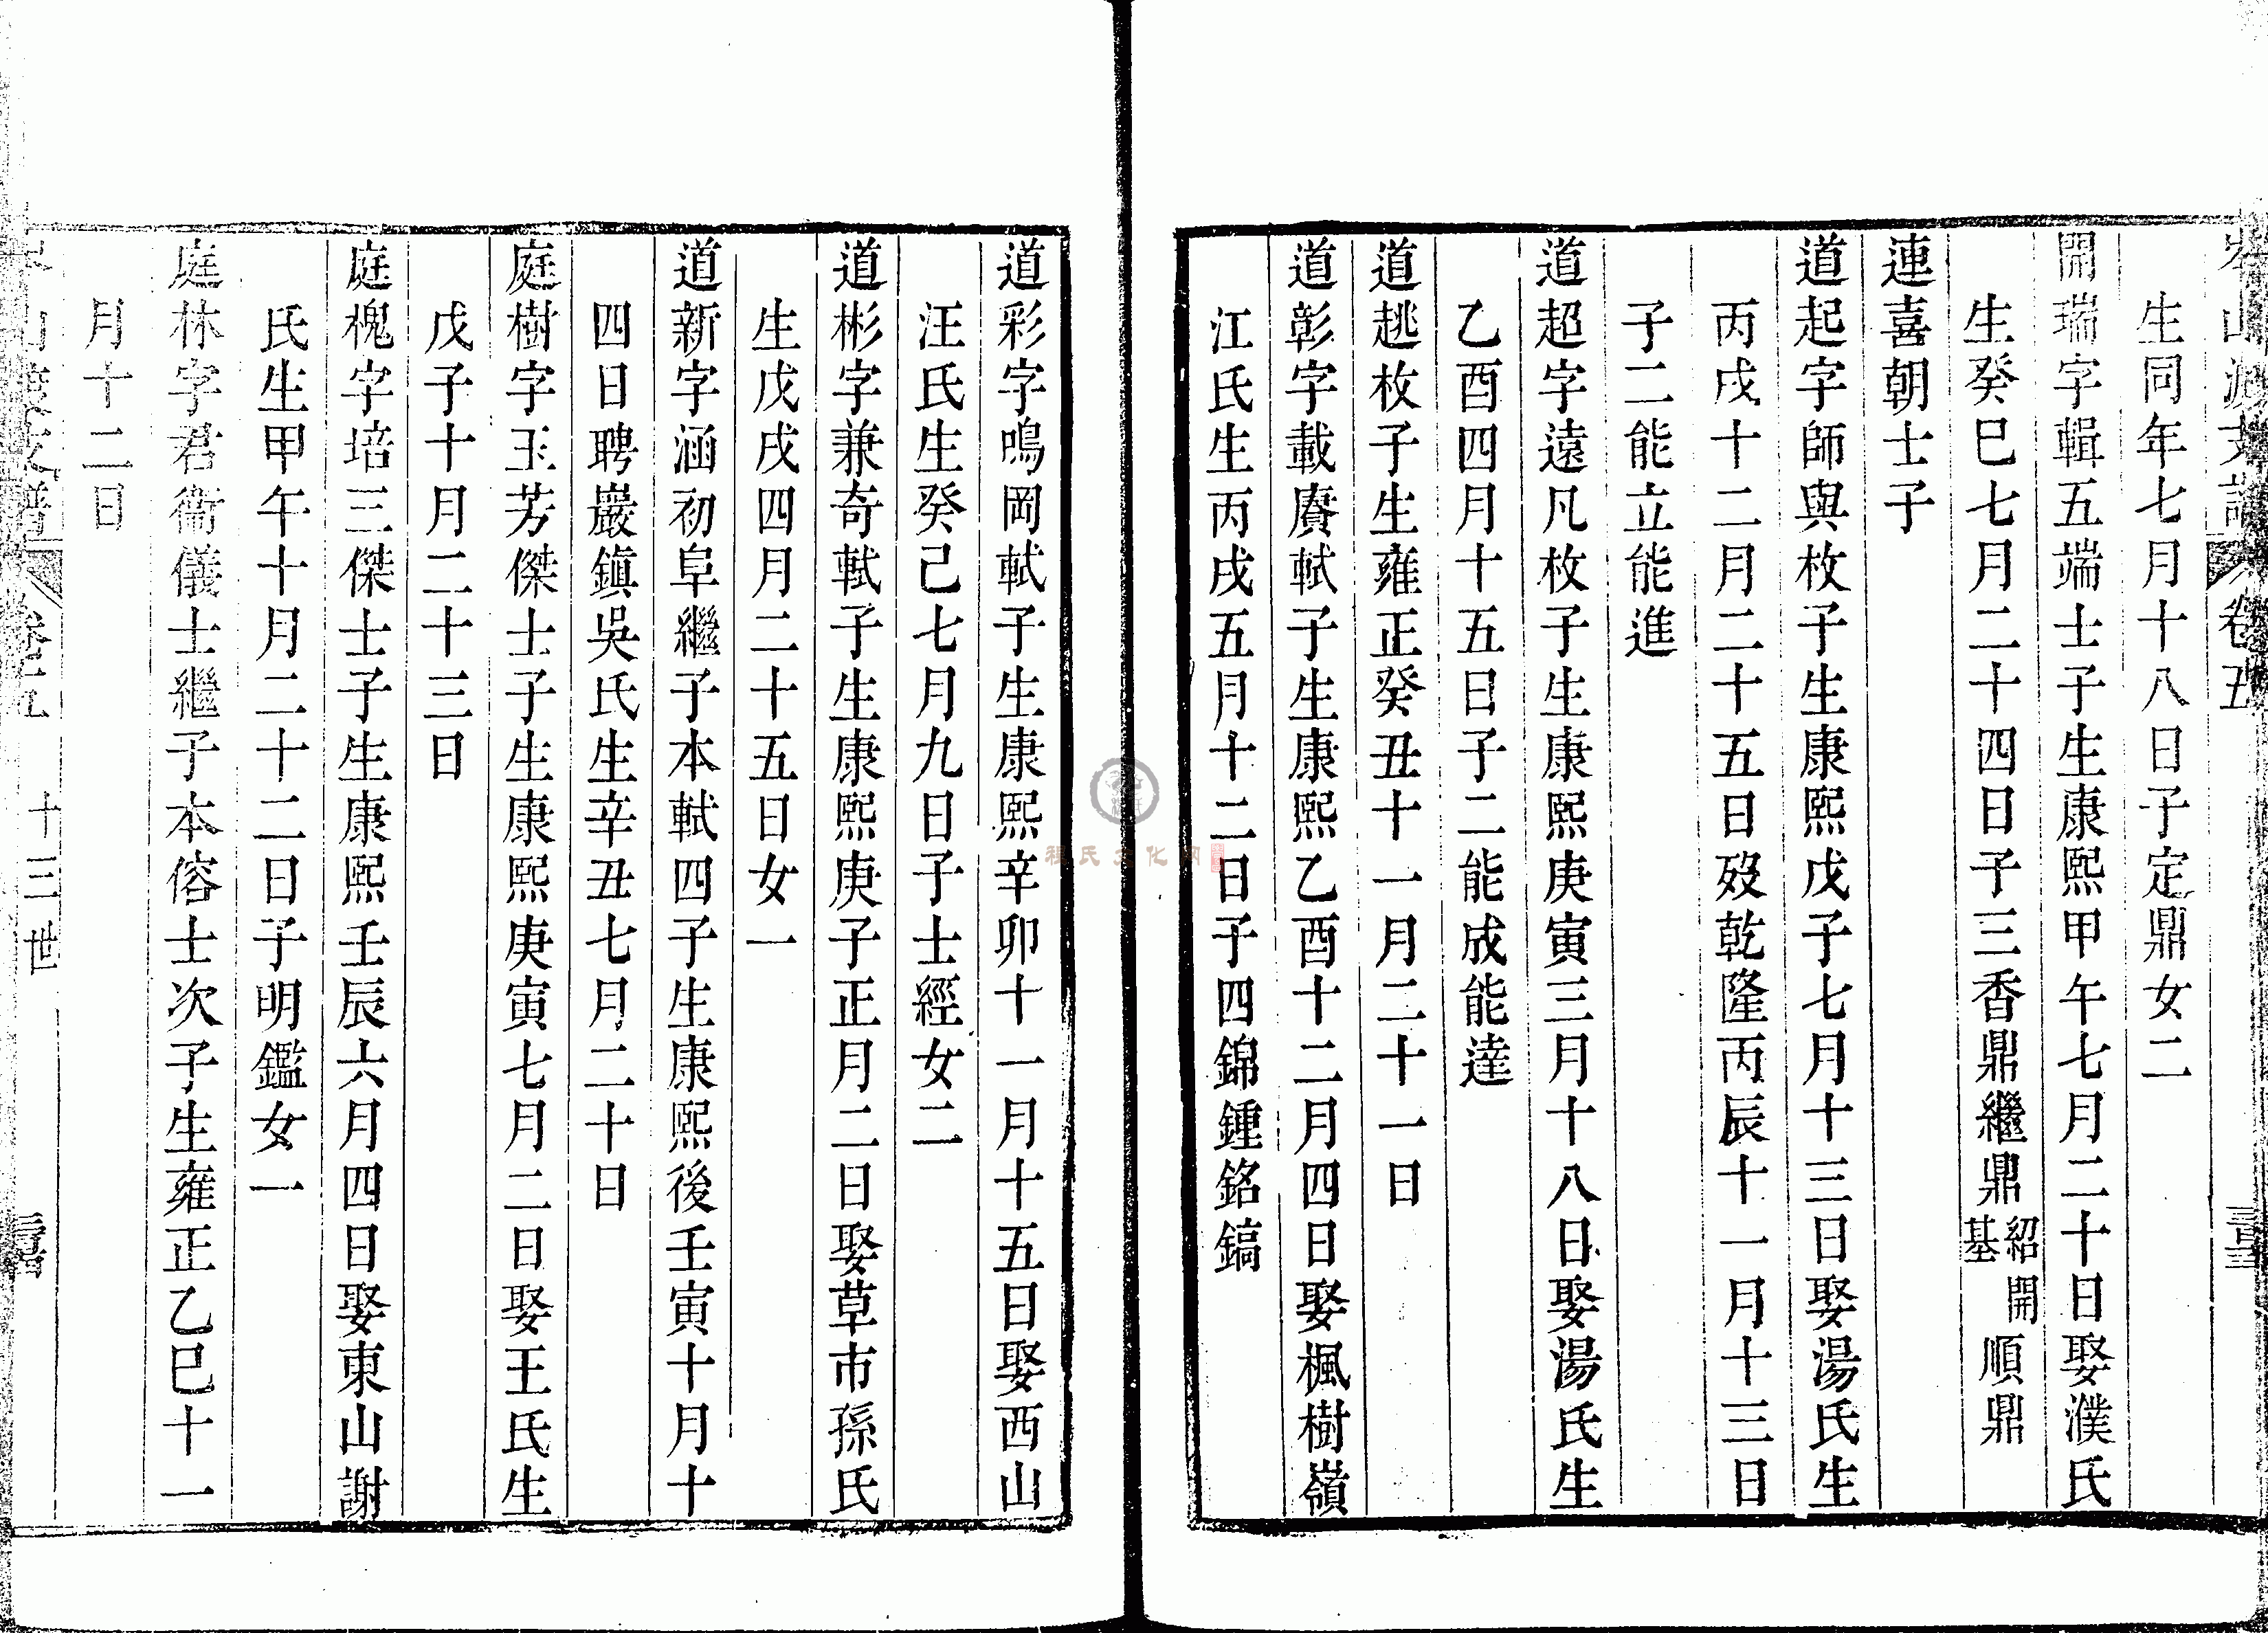 山派支譜 卷五
生同年七月十八日子定鼎女二
開瑞字輯五端士子生康熙甲午七月二十日娶濮氏
生癸巳七月二十四日子三香鼎繼鼎紹開基順鼎
連喜朝士子
道起字師與枚子生康熙戊子七月十三日娶湯氏生
丙戌十二月二十五日歿乾隆丙辰十一月十三日
子二能立能進
道超字遠凡枚子生康熙庚寅三月十八日娶湯氏生
乙酉四月十五日子二能成能達
道趒枚子生雍正癸丑十一月二十一日
道彰字載賡軾子生康熙乙酉十二月四日娶楓樹嶺
江氏生丙戌五月十二日子四錦鍾銘鎬
道彩字鳴岡軾子生康熙辛卯十一月十五日娶西山
汪氏生癸己七月九日子士經女二
道彬字兼奇軾子生康熙庚子正月二日娶草市孫氏
生戊戌四月二十五日女一
道新字涵初阜繼子本軾四子生康熙後壬寅十月十
四日聘巖鎮吳氏生辛丑七月二十日
庭樹字玉芳傑士子生康熙庚寅七月二日娶王氏生
戊子十月二十三日
庭槐字培三傑士子生康熙壬辰六月四日娶東山謝
氏生甲午十月二十二日子明鑑女一
庭林字君衞儀士繼子本傛士次子生雍正乙巳十一
月十二日
山支譜 卷五 十三世
程氏文化网